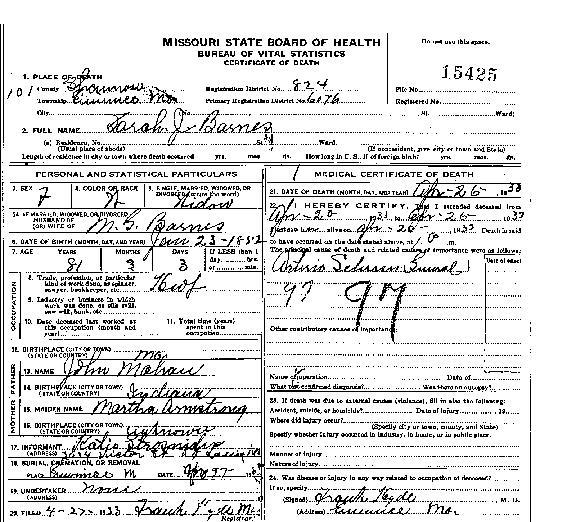 MISSOURI STATE BOARD OF HEALTH
BUREAU OF VITAL STATISTICS
CERTIFICATE OF DEATH
Do not use this space.
15425
1. PLACE OF DEATH
County Shannon Registration District No. 824 File No.
Township Eminence Mo Primary Registration District No. 6076 Registered No.
City No. St. Ward)
2. FULL NAME Sarah J Barnes
(a) Residence, No. St. Ward.
(Usual place of abode) (If nonresident, give city or town and State)
Length of residence in city or town where death occurred yrs. mos. ds. How long in U. S., if of foreign birth? yrs. mos. ds.
PERSONAL AND STATISTICAL PARTICULARS
3. SEX 7
4. COLOR OR RACE W
5. SINGLE, MARRIED, WIDOWED, OR DIVORCED (write the word) Widow
5A. IF MARRIED, WIDOWED, OR DIVORCED
HUSBAND OF
(OR) WIFE OF M. G. Barnes
6. DATE OF BIRTH (MONTH, DAY, AND YEAR) Jan 23-1852
7. AGE YEARS MONTHS DAYS If LESS than 1
81 3 3 day, hrs.
or min.
OCCUPATION
8. Trade, profession, or particular
kind of work done, as spinner,
sawyer, bookkeeper, etc.
9. Industry or business in which
work was done, as silk mill,
saw mill, bank, etc.
10. Date deceased last worked at
this occupation (month and
year)
11. Total time (years)
spent in this
occupation
12. BIRTHPLACE (CITY OR TOWN) Mo
(STATE OR COUNTRY)
FATHER
13. NAME John
14. BIRTHPLACE (CITY OR TOWN)
(STATE OR COUNTRY) Indiana
MOTHER
15. MAIDEN NAME Martha Armstrong
16. BIRTHPLACE (CITY OR TOWN)
(STATE OR COUNTRY) Unknown
17. INFORMANT Katie
(ADDRESS) Victor St
18. BURIAL, CREMATION, OR REMOVAL
PLACE Eminence M DATE Apr 27
19. UNDERTAKER none
(ADDRESS)
20. FILED 4-27-1933 Frank Hyde Mo
Registrar.
MEDICAL CERTIFICATE OF DEATH
21. DATE OF DEATH (MONTH, DAY, AND YEAR) Apr-26- 1933
22. I HEREBY CERTIFY, That I attended deceased from
Apr-20 1933 to Apr-26 1933
I last saw h alive on Apr-26- 1933 Death is said
to have occurred on the date stated above, at m.
The principal cause of death and related causes of importance were as follows:
Date of onset
97 97
Other contributory causes of importance:
Name of operation Date of
What test confirmed diagnosis? Was there an autopsy?
23. If death was due to external causes (violence), fill in also the following:
Accident, suicide, or homicide? Date of injury 19
Where did injury occur?
(Specify city or town, county, and State)
Specify whether injury occurred in industry, in home, or in public place.
Manner of injury
Nature of injury
24. Was disease or injury in any way related to occupation of deceased?
If so, specify
(Signed) Frank Hyde
(Address) Eminence Mo.